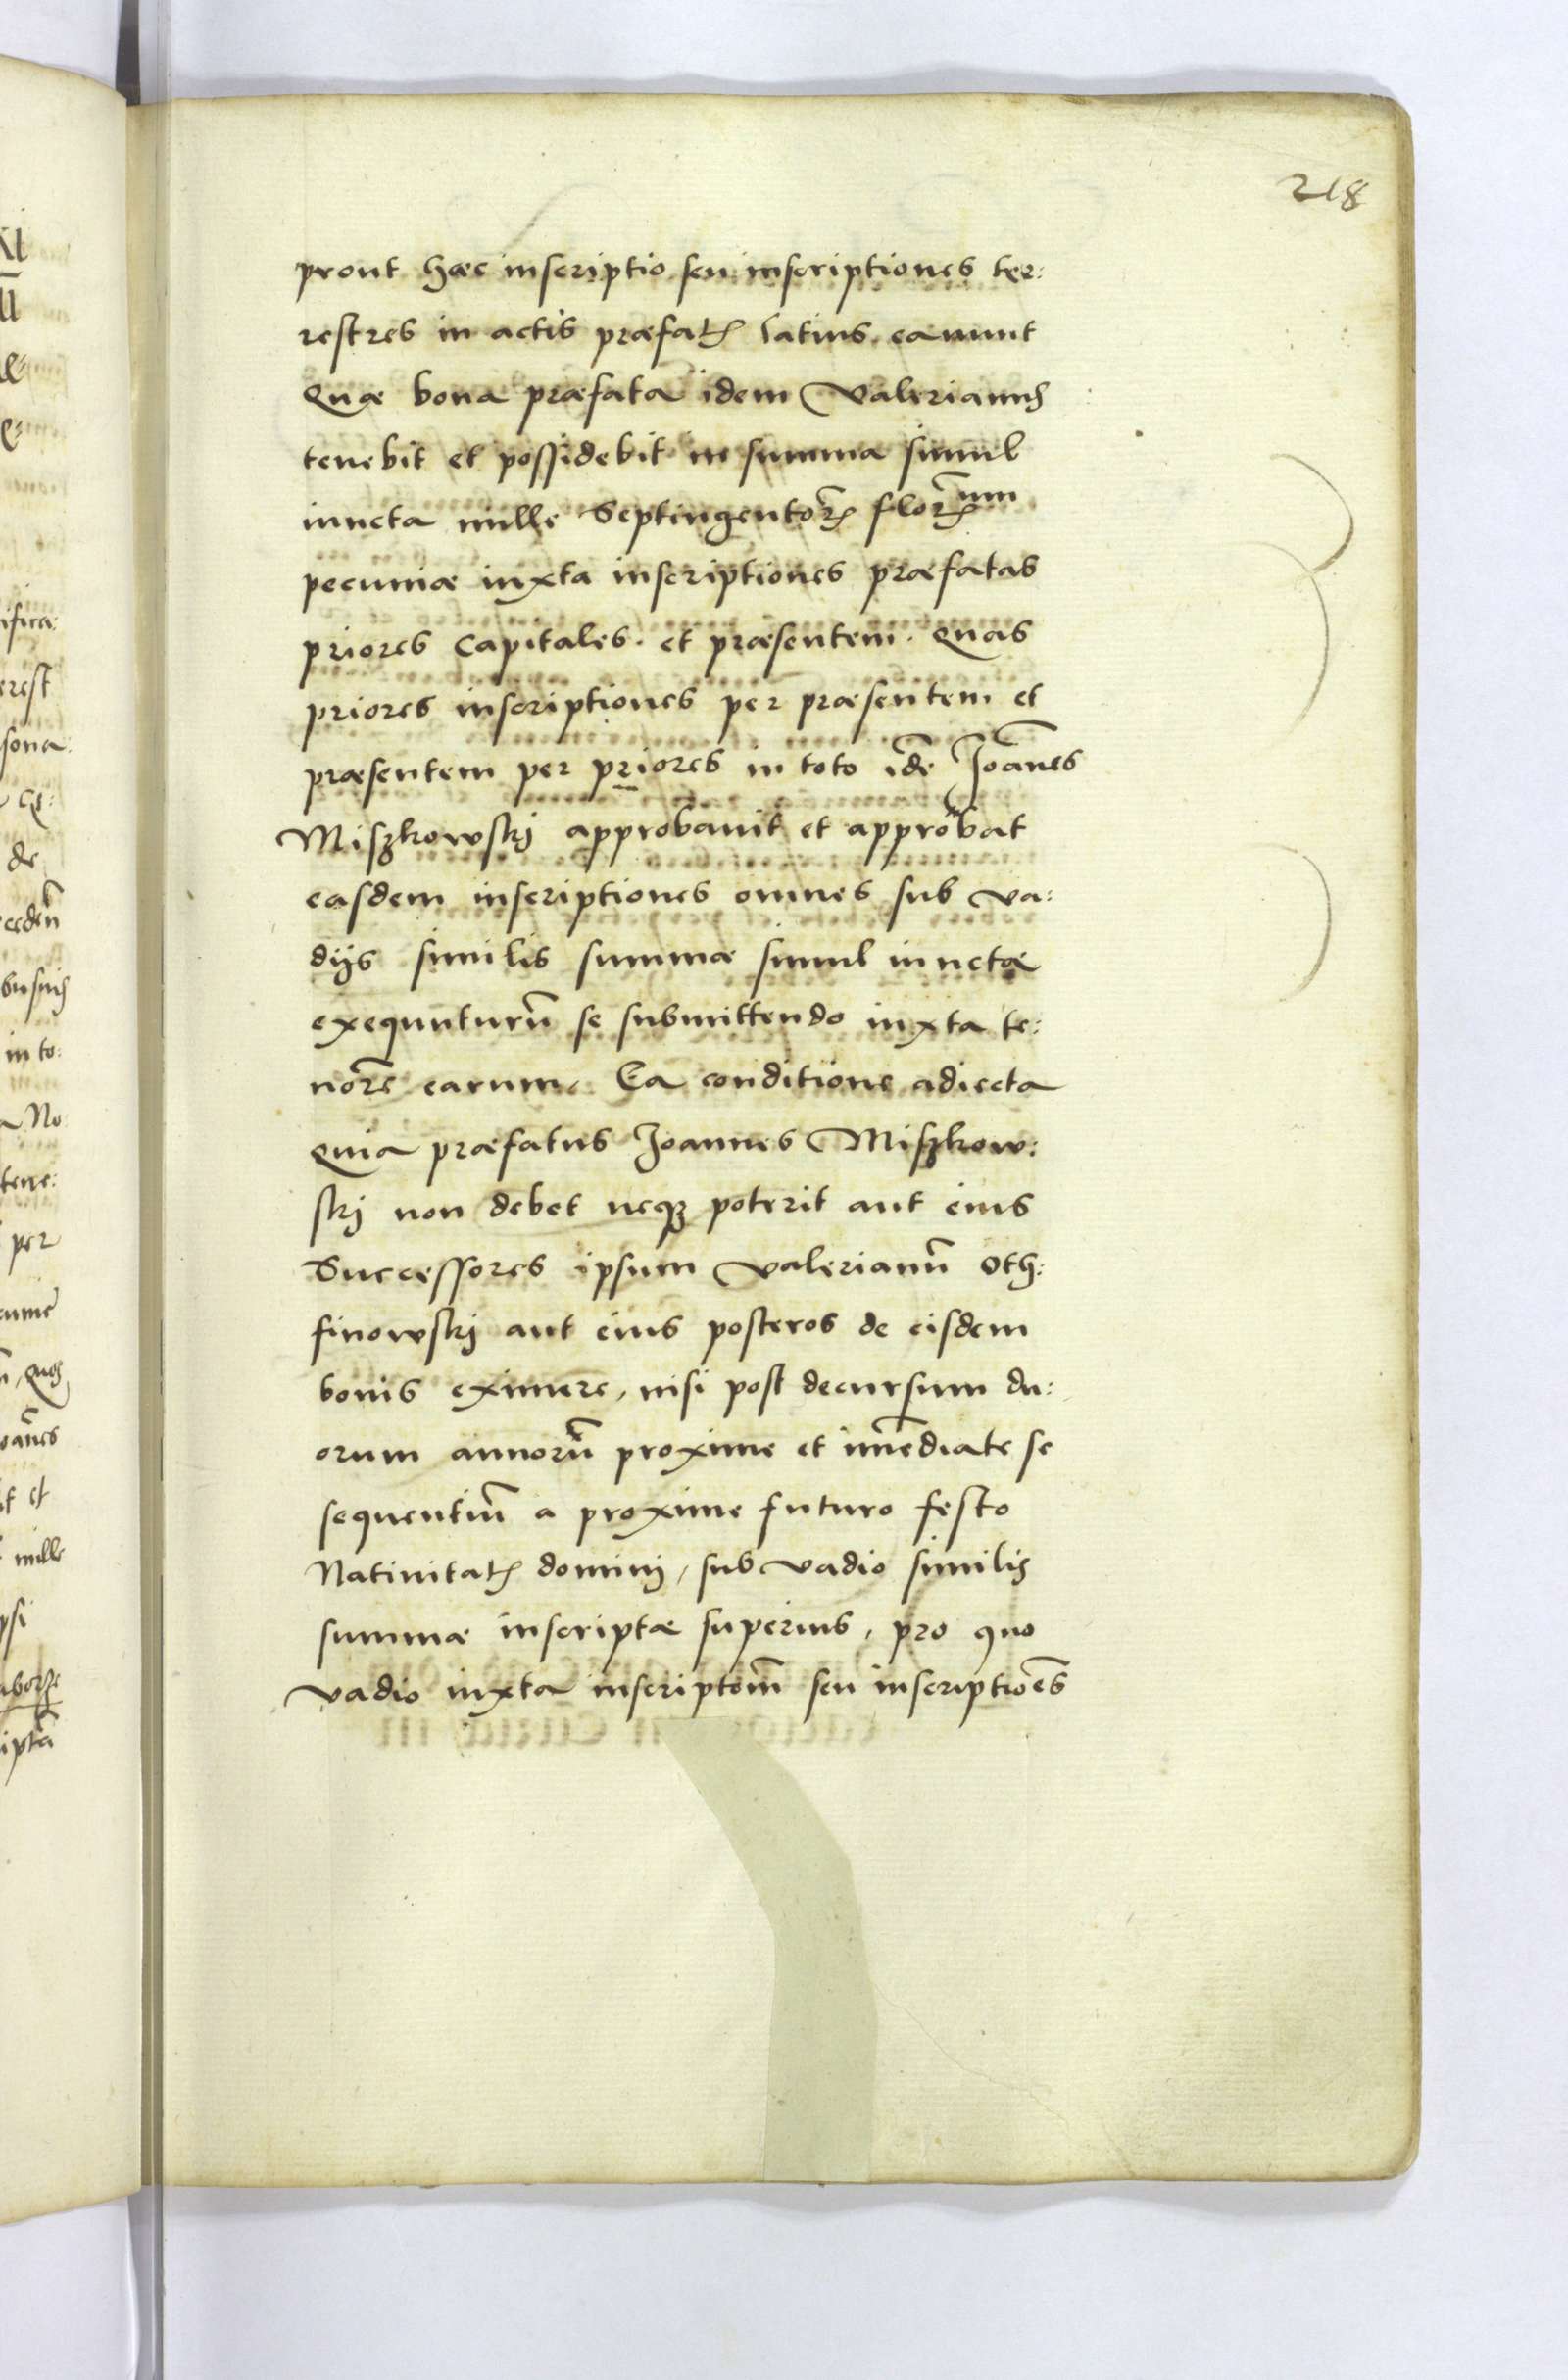 218
prout haec inscriptio seu inscriptiones ter:
restres in actis praefatꝭ latius canunt
Quae bona praefata idem Valerianus
tenebit et possidebit in summa simul
iuncta mille Septingentorꝭ florꝭ num
pecuniae iuxta inscriptiones praefatas
priores capitales. et praesentem. Quas
priores inscriptiones per praesentem et
praesentem per priores in toto idē Joānes
Miszkowskj approbavit et approbat
easdem inscriptiones omnes sub va:
dijs similis summae simul iunctae
exequunturū se submittendo iuxta te:
norē earum. Ea conditione adiecta
quia praefatus Joannes Miszkow:
skj non debet neqꝫ poterit aut eius
Successores ipsum Valerianū Oth:
finowskj aut eius posteros de eisdem
bonis eximere, nisi post decursum du:
orum annorū proxime et im̄ediate se
sequentiū a proxime futuro festo
Natiuitatꝭ dominj, sub vadio similis
summae inscriptae superius, pro quo
vadio iuxta inscriptom̄ seu inscriptioēs